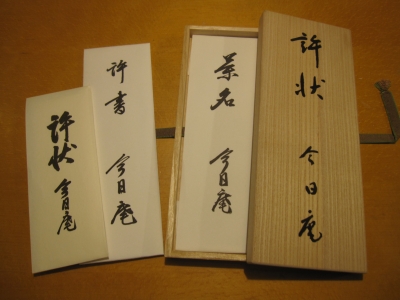 許状
今日庵
許書
今日庵
茶名
今日庵
許状
今日庵